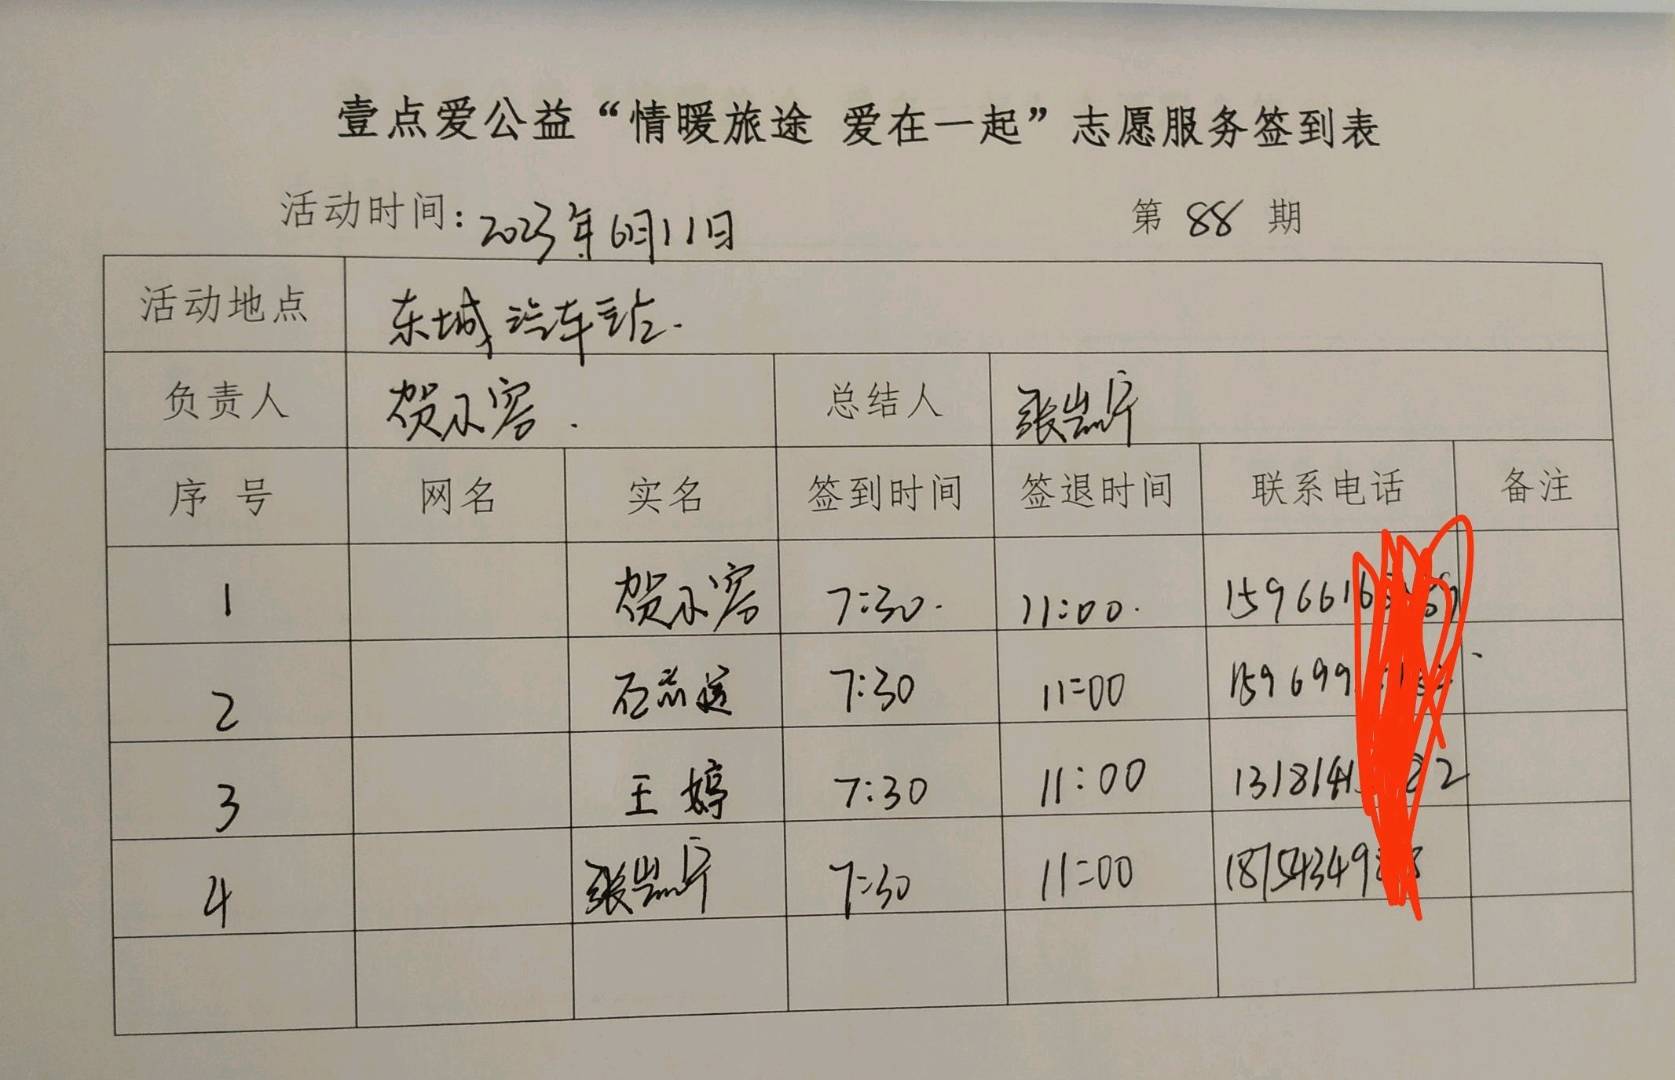 壹点爱公益“情暖旅途 爱在一起”志愿服务签到表
活动时间: 2023年6月11日 第 88 期
活动地点 东城汽车站.
负责人 贺永容. 总结人 张
序 号 网名 实名 签到时间 签退时间 联系电话 备注
1 贺永容 7:30. 11:00. 1596616
2 石 7:30 11:00 159699
3 王婷 7:30 11:00 1318141 22
4 张 7:30 11:00 187543498